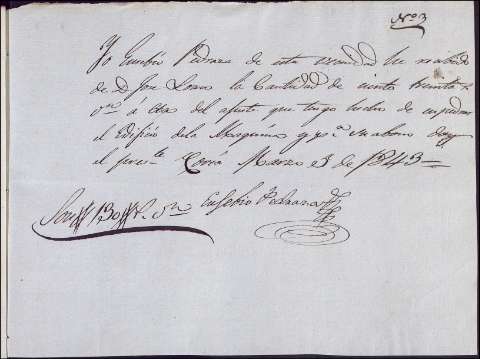 Nº 3
Yo Eusebio Pedraza de esta vecindad he recibido
de D. Jose Loano la Cantidad de ciento treinta r.
v.n á cta del ajuste que tengo hecho de empedrar
el Edificio de la Maquina y p.a su abono doy
el pres.te Coria Marzo 3 de 1843
Son 130 r. v.n Eusebio Pedraza